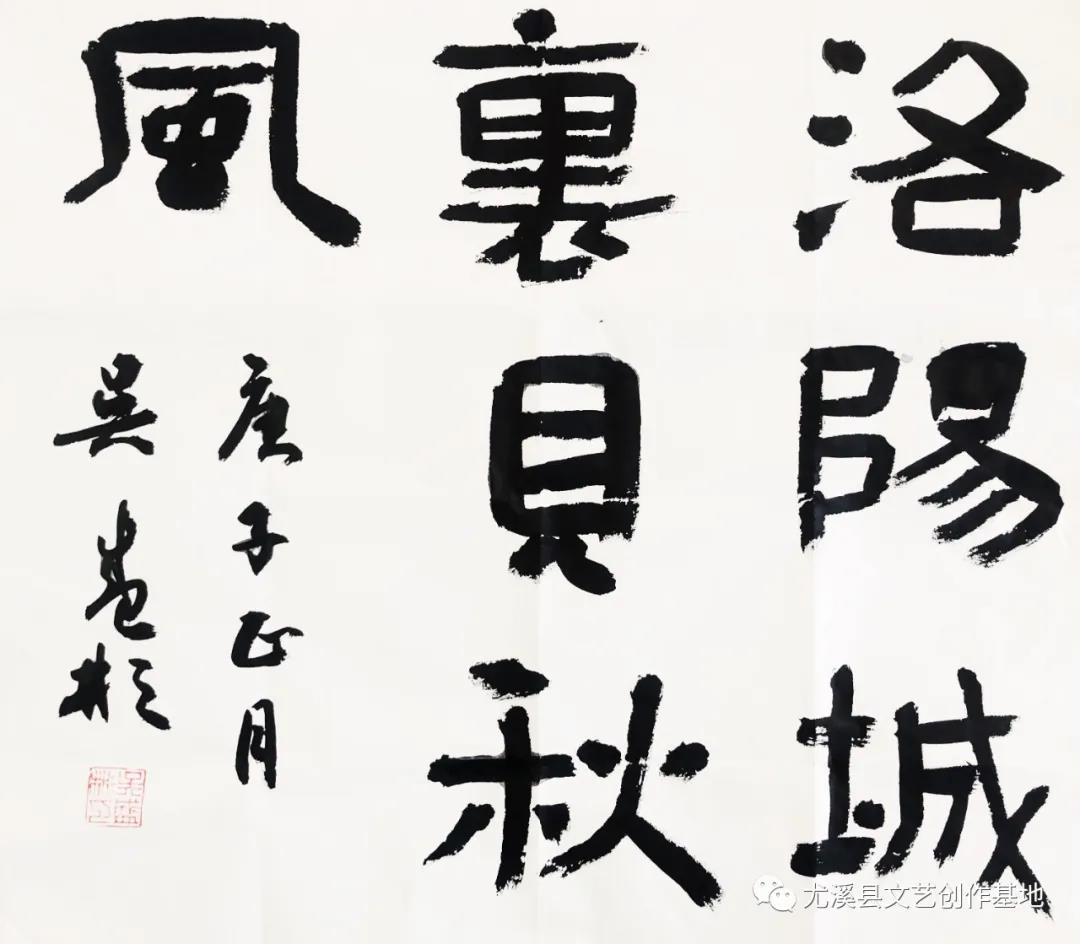 洛陽城
裏見秋
風
庚子正月
吴盛彬
尤溪县文艺创作基地